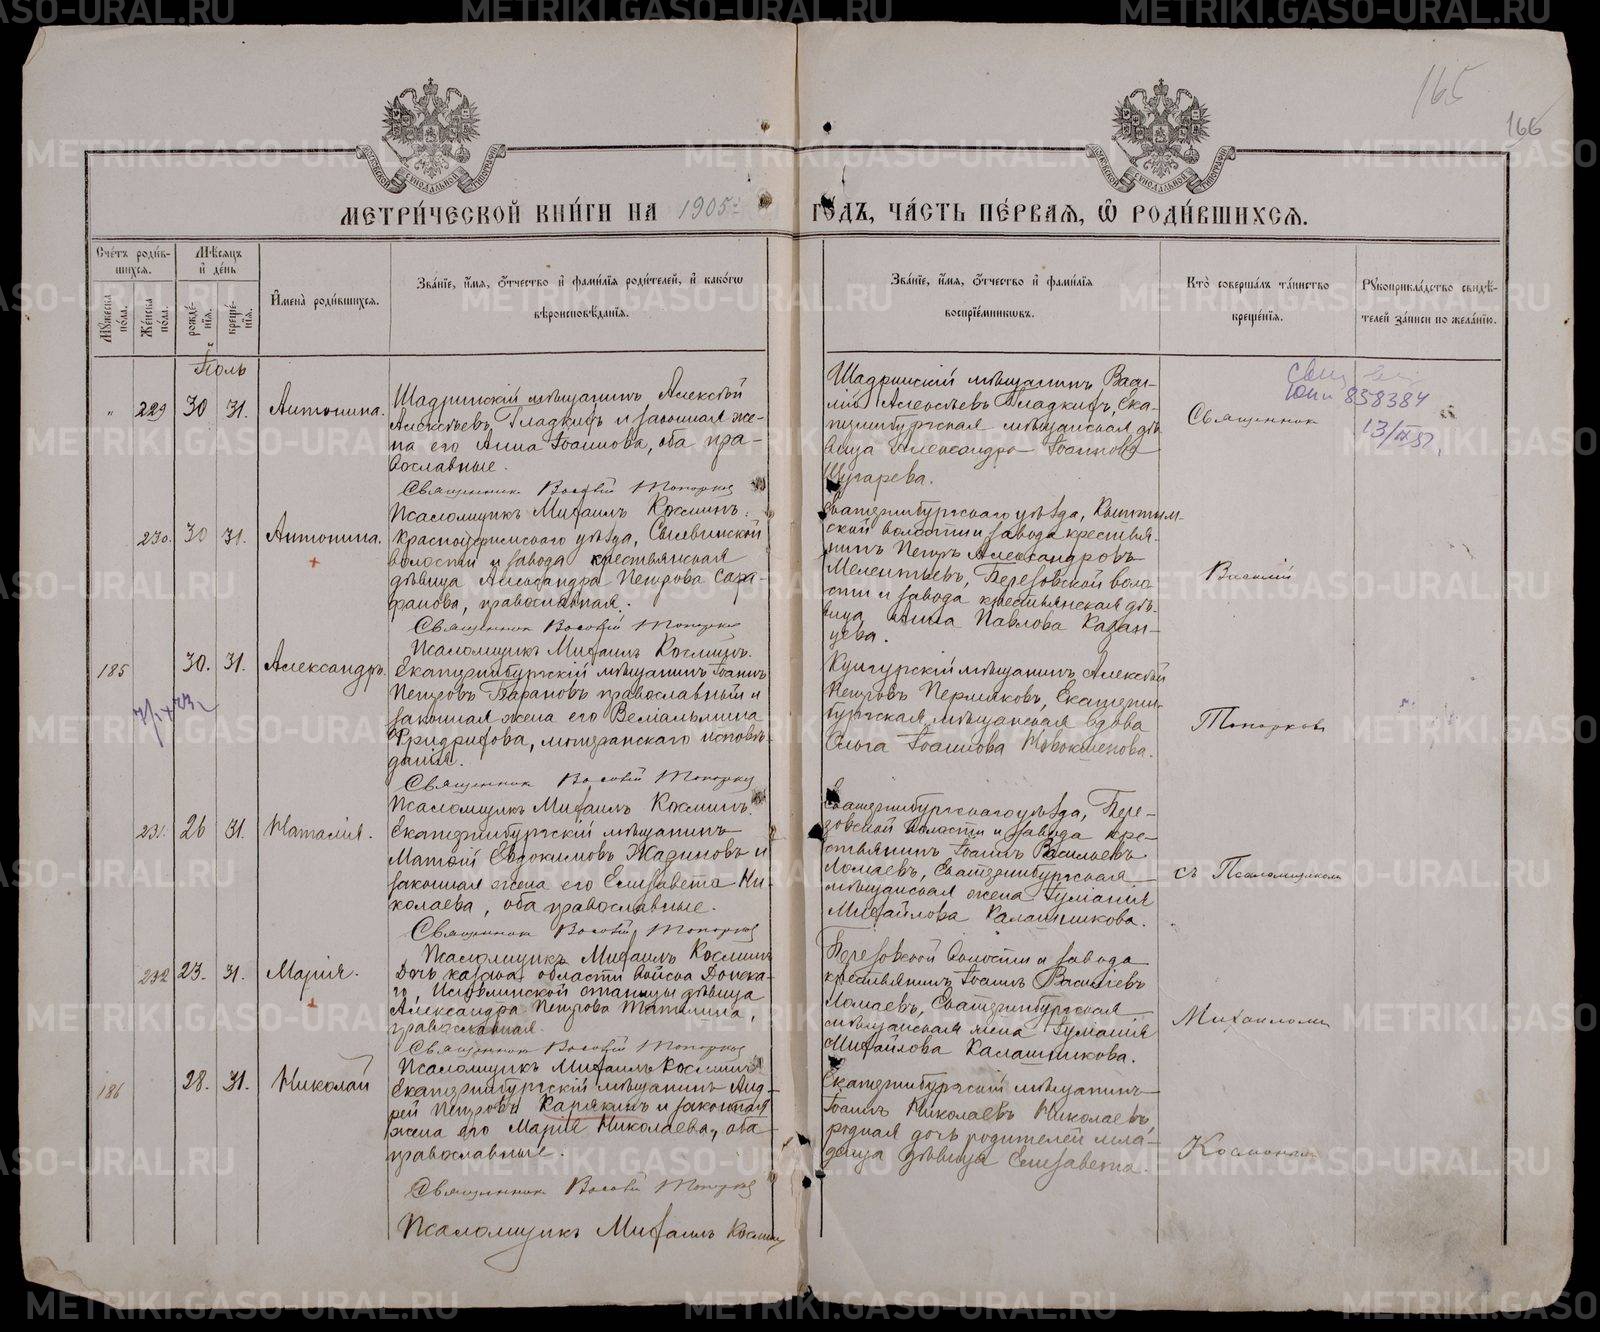 165
166
МЕТРИ́ЧЕСКОЙ КНИ́ГИ НА 1905 г.
ГОДЪ, ЧА́СТЬ ПЕ́РВАЯ, Ѡ РОДИ́ВШИХСЯ.
Сче́тъ роди́вшихся.
Му́жеска по́ла.
Же́нска по́ла.
Мѣ́сяцъ и де́нь
рожде́нїя.
креще́нїя.
И҆мена̀ роди́вшихся.
Зва́нїе, и҆́мя, ѻ҆́тчество и҆ фами́лїя роди́телей, и҆ како́гѡ вѣроисповѣ́данїя.
Зва́нїе, и҆́мя, ѻ҆́тчество и҆ фами́лїя воспрїе́мникѡвъ.
Кто̀ соверша́лъ та́инство креще́нїя.
Рꙋкоприкла́дство свидѣ́телей за́писи по жела́нїю.
Іюль
229
30
31.
Антонина.
Шадринскій мѣщанинъ, Алексѣй
Алексѣевъ Гладкихъ и законная же-
на его Анна Іоаннова, оба пра-
вославные.
Священник Васілій Топорков
Псаломщикъ Михаилъ Косминъ.
Шадринскій мѣщанинъ
Алексѣевъ Гладкихъ, Ека-
теринбургская мѣщанская дѣ-
вица Александра Іоаннова
Шугарева.
Священник
858384
13/IX 51.
230.
30
31.
Антонина.
Красноуфимскаго уѣзда, Сылвинской
волости и завода крестьянская
дѣвица Александра Петрова Сара-
фанова, православная.
Священник Васілій Топорков
Псаломщикъ Михаилъ Косминъ.
Екатеринбургскаго уѣзда, Кыштым-
ской волости и завода крестья-
нинъ Петръ Александровъ
Мелентьевъ, Березовской воло-
сти и завода крестьянская дѣ-
вица Анна Павлова Казан-
цева.
Василій
185
30.
31.
Александръ.
Екатеринбургскій мѣщанинъ Іоаннъ
Петровъ Барановъ православный и
законная жена его Вельгельмина
Фридрихова, лютеранскаго исповѣ-
данія.
Священник Васілій Топорков
Псаломщикъ Михаилъ Косминъ.
Кунгурскій мѣщанинъ Алексѣй
Петровъ Пермяковъ, Екатерин-
бургская мѣщанская вдова
Ольга Іоаннова Новокшенова.
Топорков
231.
26
31.
Наталія.
Екатеринбургскій мѣщанинъ
Матѳій Евдокимовъ Жадиновъ и
законная жена его Елисавета Ни-
колаева, оба православные.
Священник Васілій Топорков
Псаломщикъ Михаилъ Косминъ
Екатеринбургскаго уѣзда, Бере-
зовской волости и завода кре-
стьянинъ Іоаннъ Васильевъ
Ломаевъ, Екатеринбургская
мѣщанская жена Іуліанія
Михайлова Калашникова.
съ Псаломщиком
232
23.
31.
Марія.
Дочь казака области Войска Донска-
го станицы дѣвица
Александра Петрова
православная.
Священник Васілій Топорков
Псаломщикъ Михаилъ Косминъ
Березовской волости и завода
крестьянинъ Іоаннъ Васильевъ
Ломаевъ, Екатеринбургская
мѣщанская жена Іуліанія
Михайлова Калашникова.
Михаилом
186
28.
31.
Николай
Екатеринбургскій мѣщанинъ Анд-
рей Петровъ Карякинъ и законная
жена его Марія Николаева, оба
православные.
Священник Васілій Топорков
Псаломщикъ Михаилъ Космин
Екатеринбургскій мѣщанинъ
Іоаннъ Николаевъ Николаевъ,
родная дочь родителей мла-
денца дѣвица Елисавета.
Косминым
METRIKI.GASO-URAL.RU